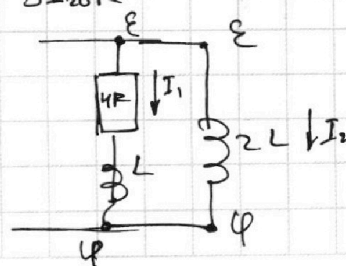 ε ε
4R I₁
L 2L I₂
φ φ